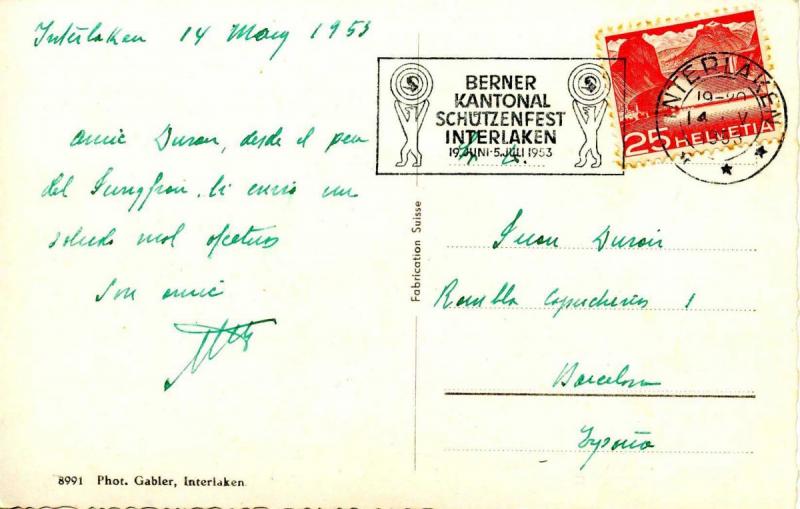 Interlaken 14 Mayg 1953
Amic Duran, desde el peu
del Jungfrau, li envio un
saludo mol afectuos
Son amic
BERNER
KANTONAL
SCHÜTZENFEST
INTERLAKEN
19. JUNI-5. JULI 1953
INTERLAKEN
19-20
14 V
1953
25 HELVETIA
Sr. D.
Juan Duran
Rambla Capuchinos 1
Barcelona
España
Fabrication Suisse
8991 Phot. Gabler, Interlaken